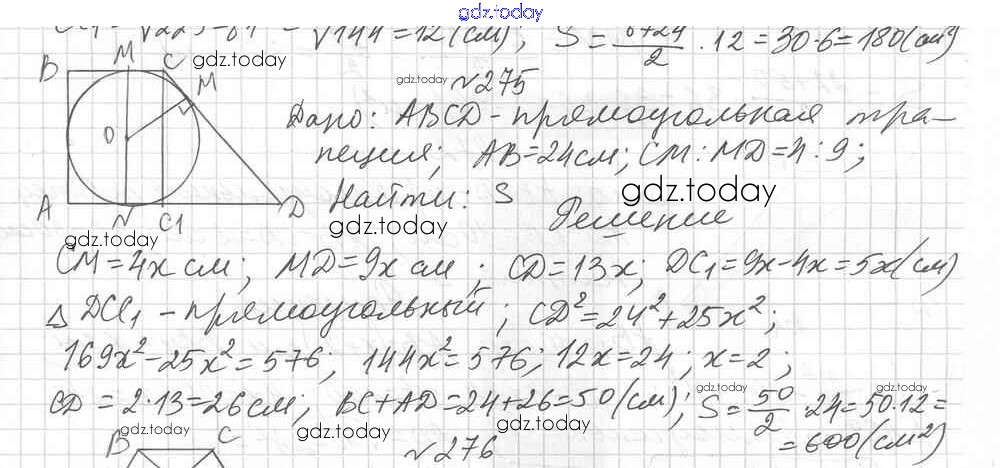 gdz.today
= √144 = 12 (см), S = 6+24/2 · 12 = 30·6 = 180 (см²)
gdz.today
№275
gdz.today
B M C M
O
A N C1 D
Дано: ABCD - прямоугольная тра-
пеция; AB=24см; CM:MD=4:9;
Найти: S
gdz.today
gdz.today
Решение
gdz.today
CM=4x см; MD=9x см; CD=13x; DC₁=9x-4x=5x(см)
gdz.today
△DCC₁ - прямоугольный; CD²=24²+25x²;
169x²-25x²=576; 144x²=576; 12x=24; x=2;
CD=2·13=26см; BC+AD=24+26=50(см); S=50/2·24=50·12=
gdz.today
gdz.today
=600(см²)
gdz.today
gdz.today
gdz.today
B C
№276